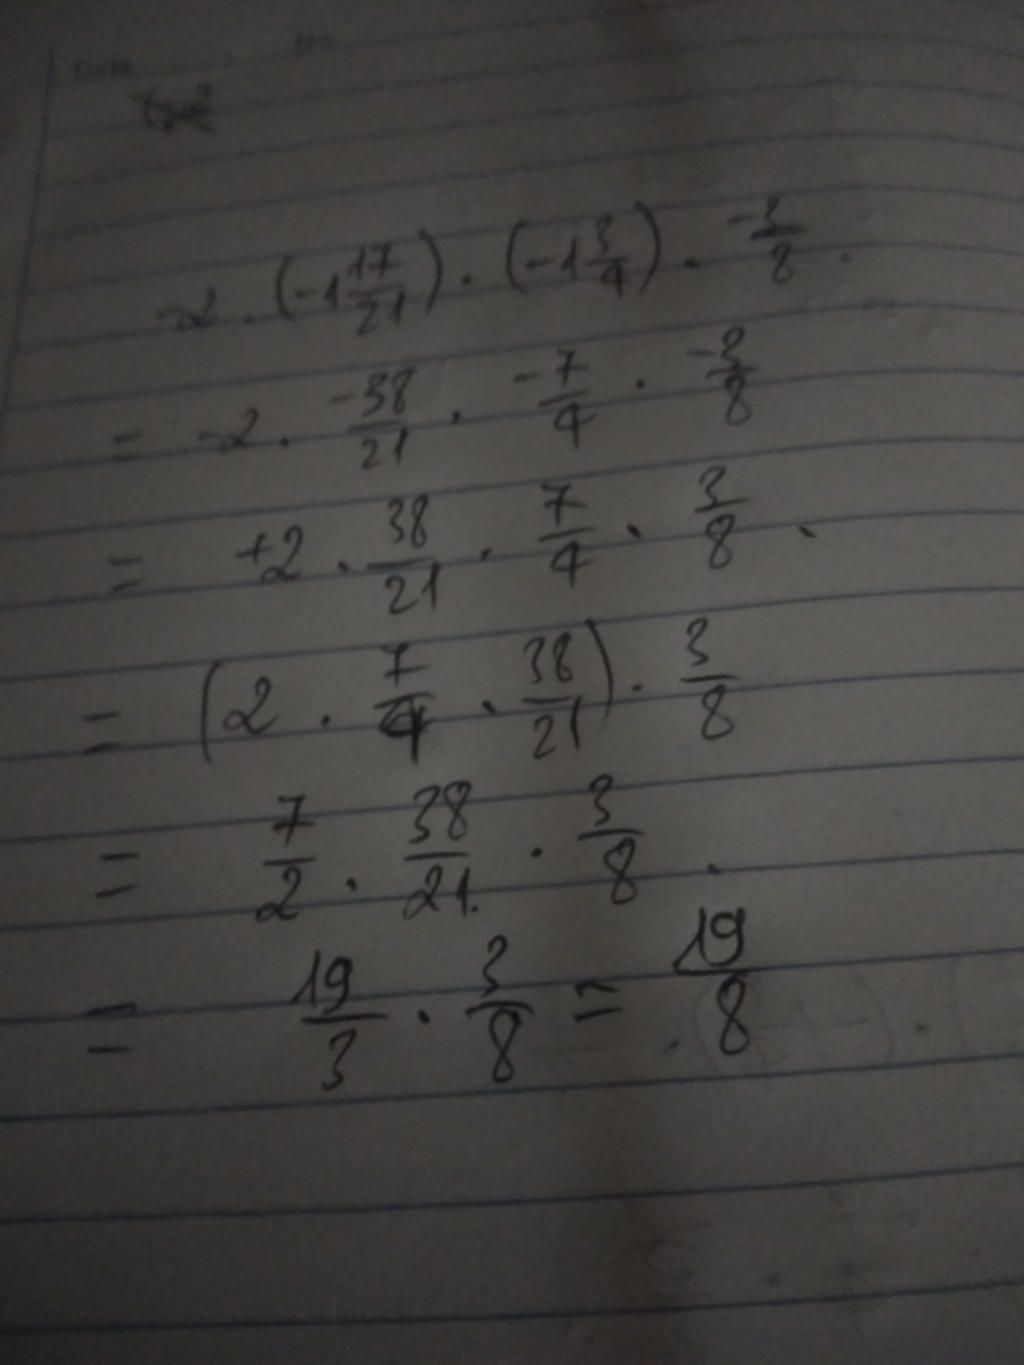 -2 . (-1 17/21) . (-1 3/4) . -3/8 .
= -2 . -38/21 . -7/4 . -3/8
= +2 . 38/21 . 7/4 . 3/8 .
= (2 . 7/4 . 38/21) . 3/8
= 7/2 . 38/21 . 3/8 .
= 19/3 . 3/8 = 19/8